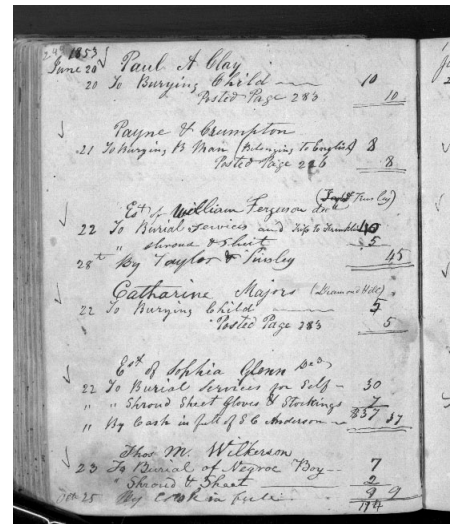 249 1853
June 20 Paul A Clay
20 To Burying Child 10
Posted Page 283 10
Payne & Crumpton
21 To Burying B Man (Belonging to English) 8
Posted Page 226 8
Est of William Ferguson
22 To Burial Services and Trip to Franklin 40
" Shroud & Sheet 5
28th By Taylor & Tinsley 45
Catharine Majors (Diamond Hill)
22 To Burying Child 5
Posted Page 283 5
Est of Sophia Glenn Decd
22 To Burial Services for Self 30
" " Shroud Sheet Gloves & Stockings 7
" By Cash in full of S C Anderson $37 37
Thos M. Wilkerson
23 To Burial of Negroe Boy 7
" Shroud & Sheet 2
25 By in full 9 9